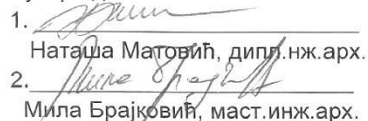 1.
Наташа Матовић, дипл.нж.арх.
2.
Мила Брајковић, маст.инж.арх.